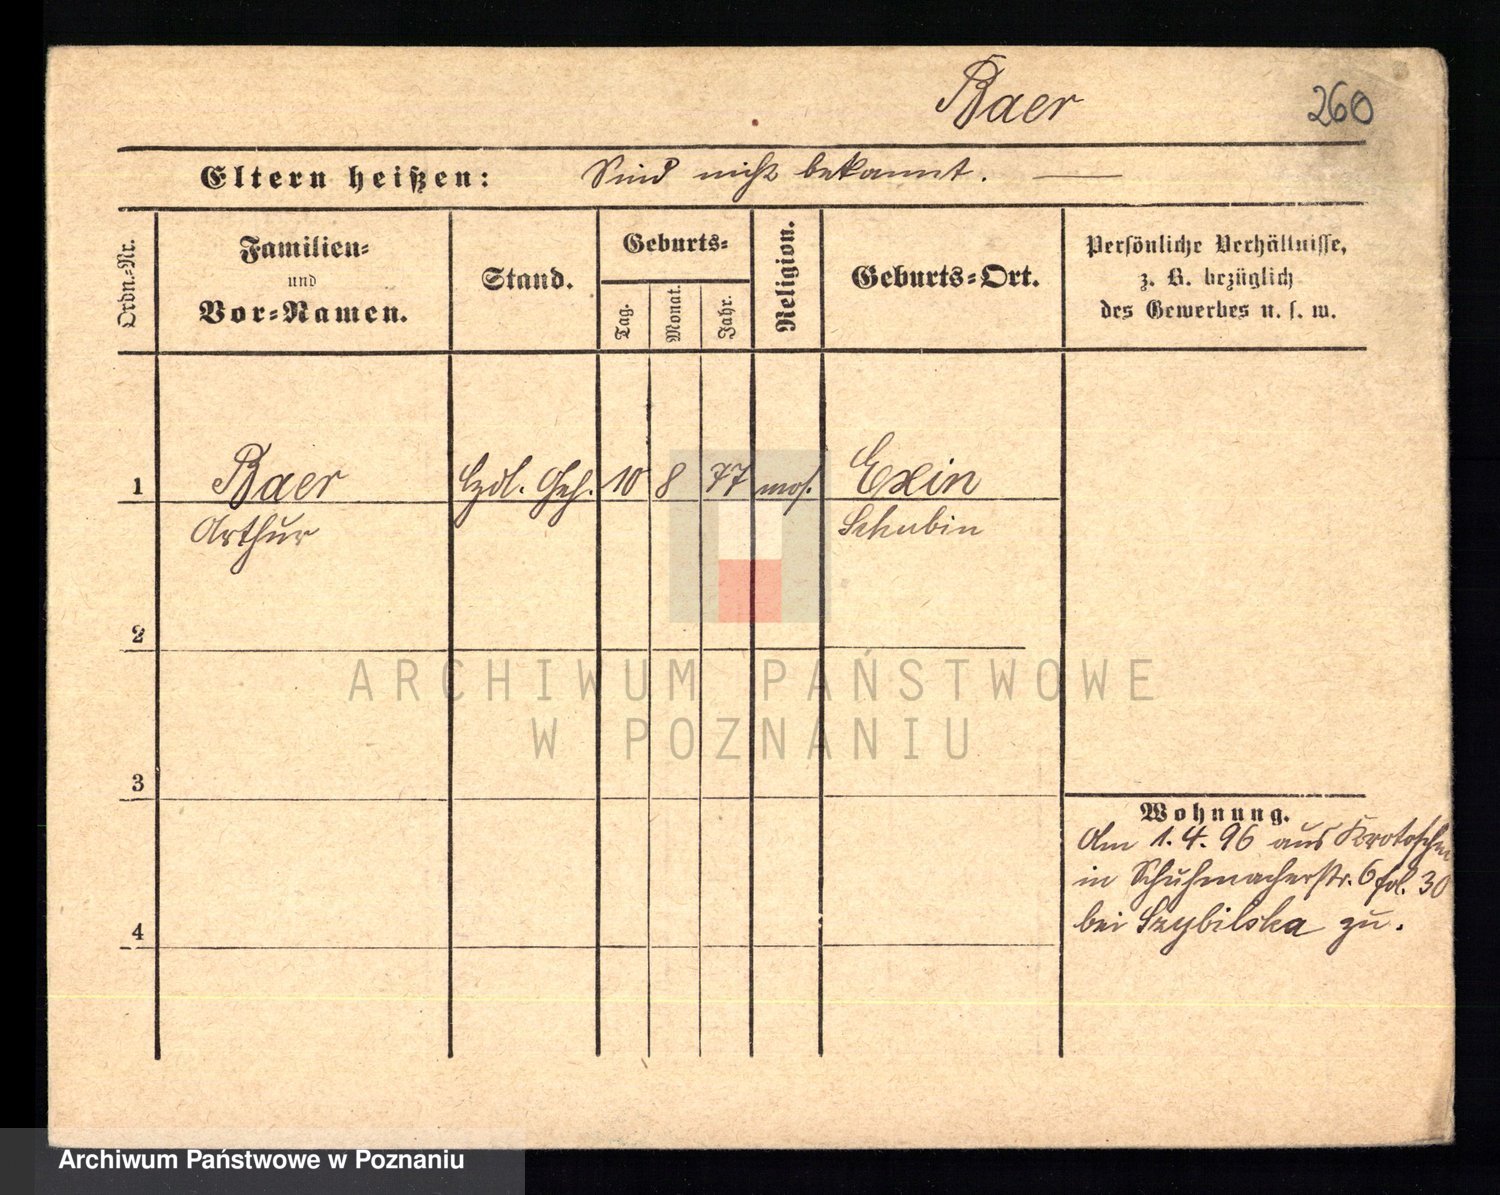 Baer
260
Eltern heißen: Sind nicht bekannt.
Ordn.-Nr.
Familien-
und
Vor-Namen.
Stand.
Geburts-
Tag.
Monat.
Jahr.
Religion.
Geburts-Ort.
Persönliche Verhältnisse,
z. B. bezüglich
des Gewerbes u. s. w.
1 Baer Hdl. Geh. 10 8 77 mos. Exin
Arthur Schubin
2
ARCHIWUM PAŃSTWOWE
W POZNANIU
3
Wohnung.
Am 1. 4. 96 aus Krotoschin
in Schuhmacherstr. 6 fol. 30
bei Szybilska zu.
4
Archiwum Państwowe w Poznaniu